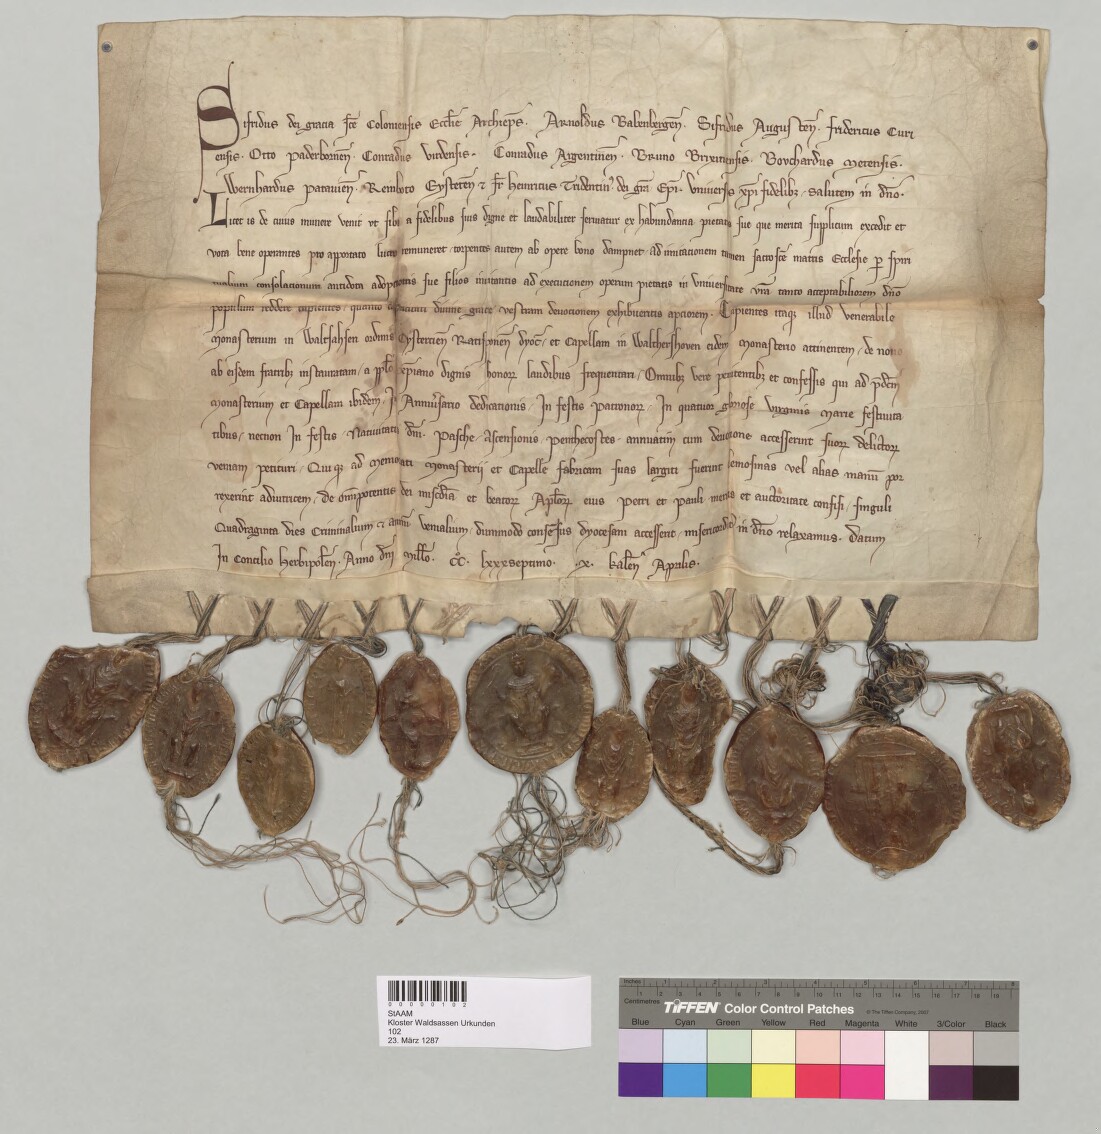 Sifridus dei gracia sce Coloniensis Ecclie Archieps. Arnoldus Babenbergen. Sifridus Augusten. fridericus Curi
ensis. Otto Paderbornen. Conradus Virdensis. Conradus Argentinen. Bruno Brixinensis. Bovchardus Metensis.
Wernhardus Patavien. Reimboto Eysteten & fr Heinricus Tridentin dei gra Epi. Universis xpi fidelibz salutem in dno.
Licet is de cuius munere venit ut sibi a fidelibus suis digne et laudabiliter serviatur ex habundancia pietatis sue que merita supplicum excedit et
vota bene operantes pro apportato lucro remuneret torpentes autem ab opere bono dampnet ad imitacionem tamen sacrosce matris Ecclesie per spiri
tualium consolacionum antidota adoptionis sue filios invitantis ad execucionem operum pietatis in Universitate vra tanto acceptabiliorem dno
populum reddere cupientes quanto capacem divine gracie vestram devocionem exhibueritis apciorem. Cupientes itaque illud venerabile
Monasterium in Waltsahsen ordinis Cystercien Ratisponen dyoc et Capellam in Walthershoven eidem Monasterio attinentem de novo
ab eisdem fratribz instauratam a pplo xpiano dignis honorz laudibus frequentari Omnibz vere penitentibz et confessis qui ad pdcm
Monasterium et Capellam ibidem In Anniversario dedicationis In festis Patronorz In quatuor gloriose virginis Marie festivita
tibus necnon In festis Nativitatis dni Pasche Ascensionis Penthecostes annuatim cum devocione accesserint suorz delictorz
veniam petituri Qui que ad memorati Monasterij et Capelle fabricam suas largiti fuerint elemosinas vel alias manum por
rexerint adiutricem de omnipotentis dei miscdia et beatorz Aplorz eius Petri et Pauli meritis et auctoritate confisi singuli
Quadraginta dies Criminalium & annum venialium dummodo consensus dyocesani accesserit misericorditer in dno relaxamus. Datum
In Concilio Herbipolen. Anno dni Millo. CC. lxxxseptimo. .x. kalen Aprilis.
00000102
StAAM
Kloster Waldsassen Urkunden
102
23. März 1287
Inches 1 2 3 4 5 6 7 8
Centimetres 1 2 3 4 5 6 7 8 9 10 11 12 13 14 15 16 17 18 19
TIFFEN Color Control Patches © The Tiffen Company, 2007
Blue Cyan Green Yellow Red Magenta White 3/Color Black